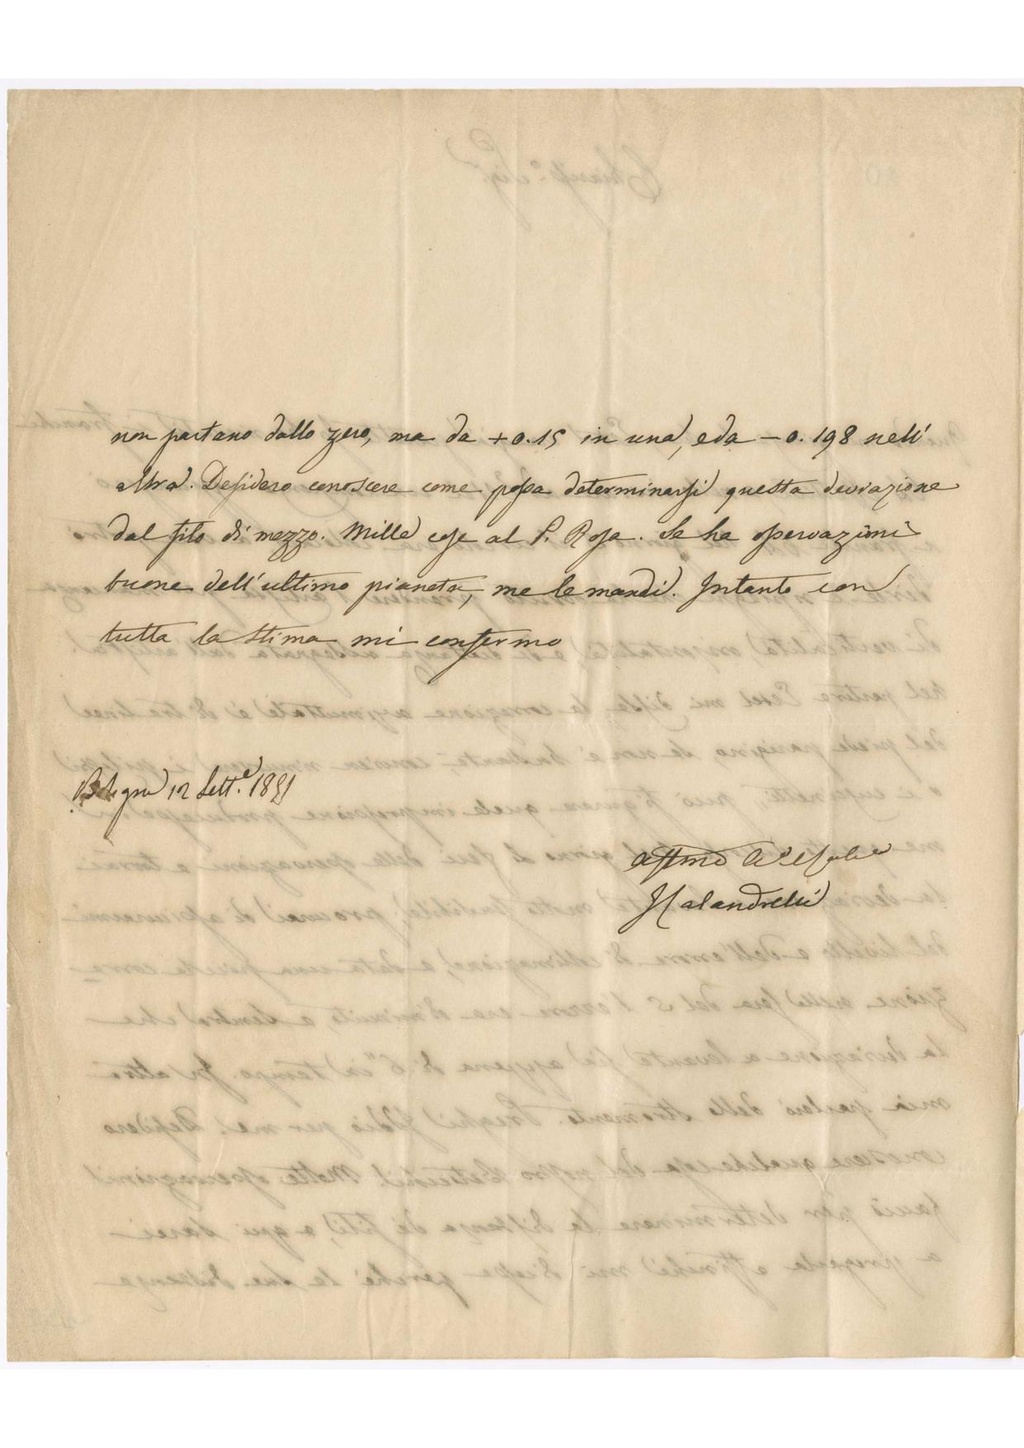 non partano dallo zero, ma da +0.15 in una, e da -0.198 nell'
altra. Desidero conoscere come possa determinarsi questa deviazione
dal filo di mezzo. Mille cose al P. Rosa. Se ha osservazioni
buone dell'ultimo pianeta, me le mandi. Intanto con
tutta la stima mi confermo
Bologna 12 Sett.e 1851
Affmo
I Calandrelli